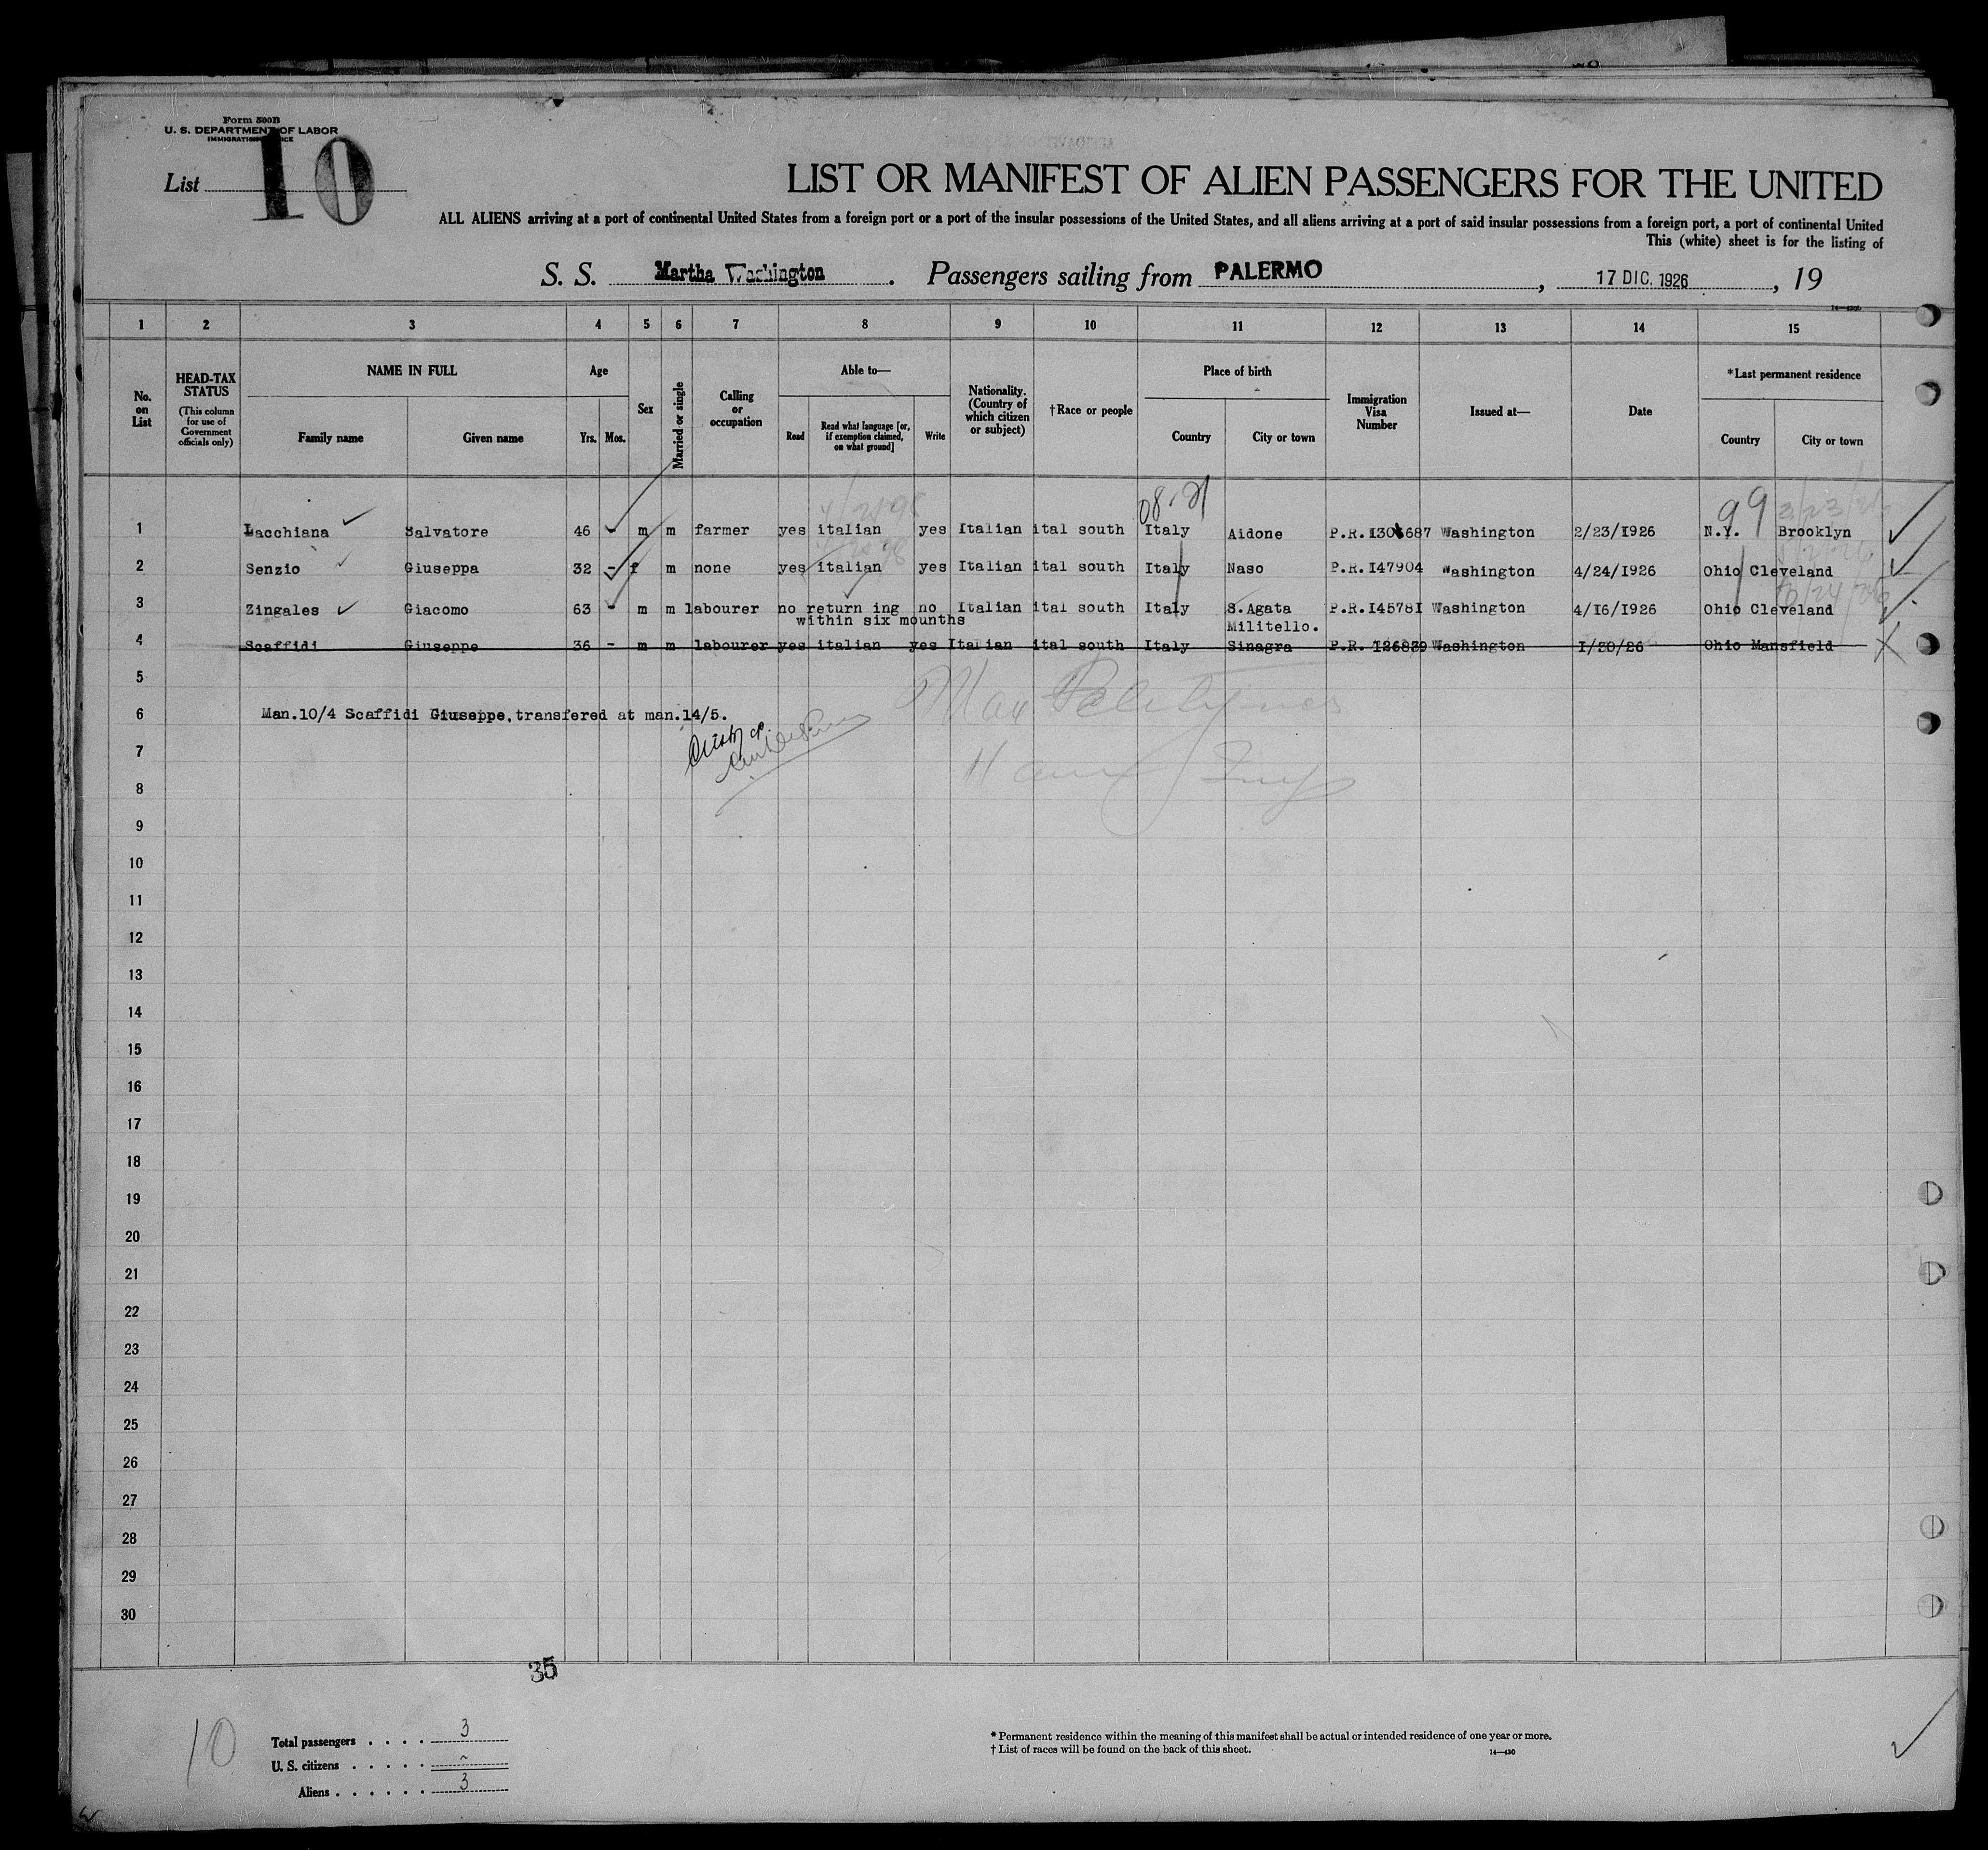 Form 500B
U. S. DEPARTMENT OF LABOR
IMMIGRATION SERVICE
List 10
LIST OR MANIFEST OF ALIEN PASSENGERS FOR THE UNITED
ALL ALIENS arriving at a port of continental United States from a foreign port or a port of the insular possessions of the United States, and all aliens arriving at a port of said insular possessions from a foreign port, a port of continental United
This (white) sheet is for the listing of
S. S. Martha Washington. Passengers sailing from PALERMO, 17 DIC. 1926, 19
1 2 3 4 5 6 7 8 9 10 11 12 13 14 15
No. on List
HEAD-TAX STATUS
(This column for use of Government officials only)
NAME IN FULL
Family name
Given name
Age
Yrs. Mos.
Sex
Married or single
Calling or occupation
Able to—
Read
Read what language [or, if exemption claimed, on what ground]
Write
Nationality. (Country of which citizen or subject)
†Race or people
Place of birth
Country
City or town
Immigration Visa Number
Issued at—
Date
*Last permanent residence
Country
City or town
08-21
99
1 Lacchiana Salvatore 46 - m m farmer yes italian yes Italian ital south Italy Aidone Washington 2/23/1926 N.Y. Brooklyn
2 Senzio Giuseppa 32 - f m none yes italian yes Italian ital south Italy Naso P.R.147904 Washington 4/24/1926 Ohio Cleveland
3 Zingales Giacomo 63 - m m labourer no return ing no Italian ital south Italy S.Agata P.R.145781 Washington 4/16/1926 Ohio Cleveland
within six mounths Militello.
4 Scaffidi Giuseppe 36 - m m labourer yes italian yes Italian ital south Italy Sinagra P.R. 126839 Washington 1/20/26 Ohio Mansfield
5
6 Man.10/4 Scaffidi Giuseppe,transfered at man.14/5.
7
8
9
10
11
12
13
14
15
16
17
18
19
20
21
22
23
24
25
26
27
28
29
30
35
10
Total passengers . . . . 3
U. S. citizens . . . . . ~
Aliens . . . . . . 3
* Permanent residence within the meaning of this manifest shall be actual or intended residence of one year or more.
† List of races will be found on the back of this sheet.
14—430